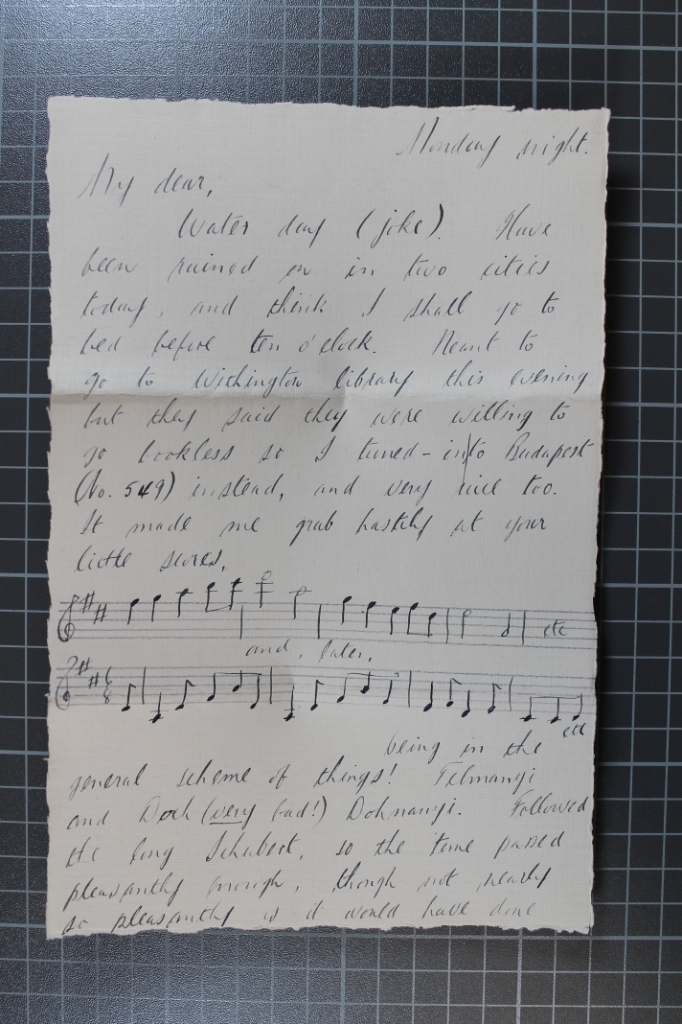 Monday night.
My dear,
Water day (joke). Have
been ruined on in two cities
today, and think I shall go to
bed before ten o'clock. Meant to
go to Withington library this evening
but they said they were willing to
go bookless so I tuned-in to Budapest
(No. 549) instead, and very nice too.
It made me grab hastily at your
little scores,
and, later,
etc
etc
being in the
general scheme of things! Telmanyi
and Doch (very bad!) Dohnanyi. Followed
the long Schubert, so the time passed
pleasantly enough, though not nearly
so pleasantly as it would have done